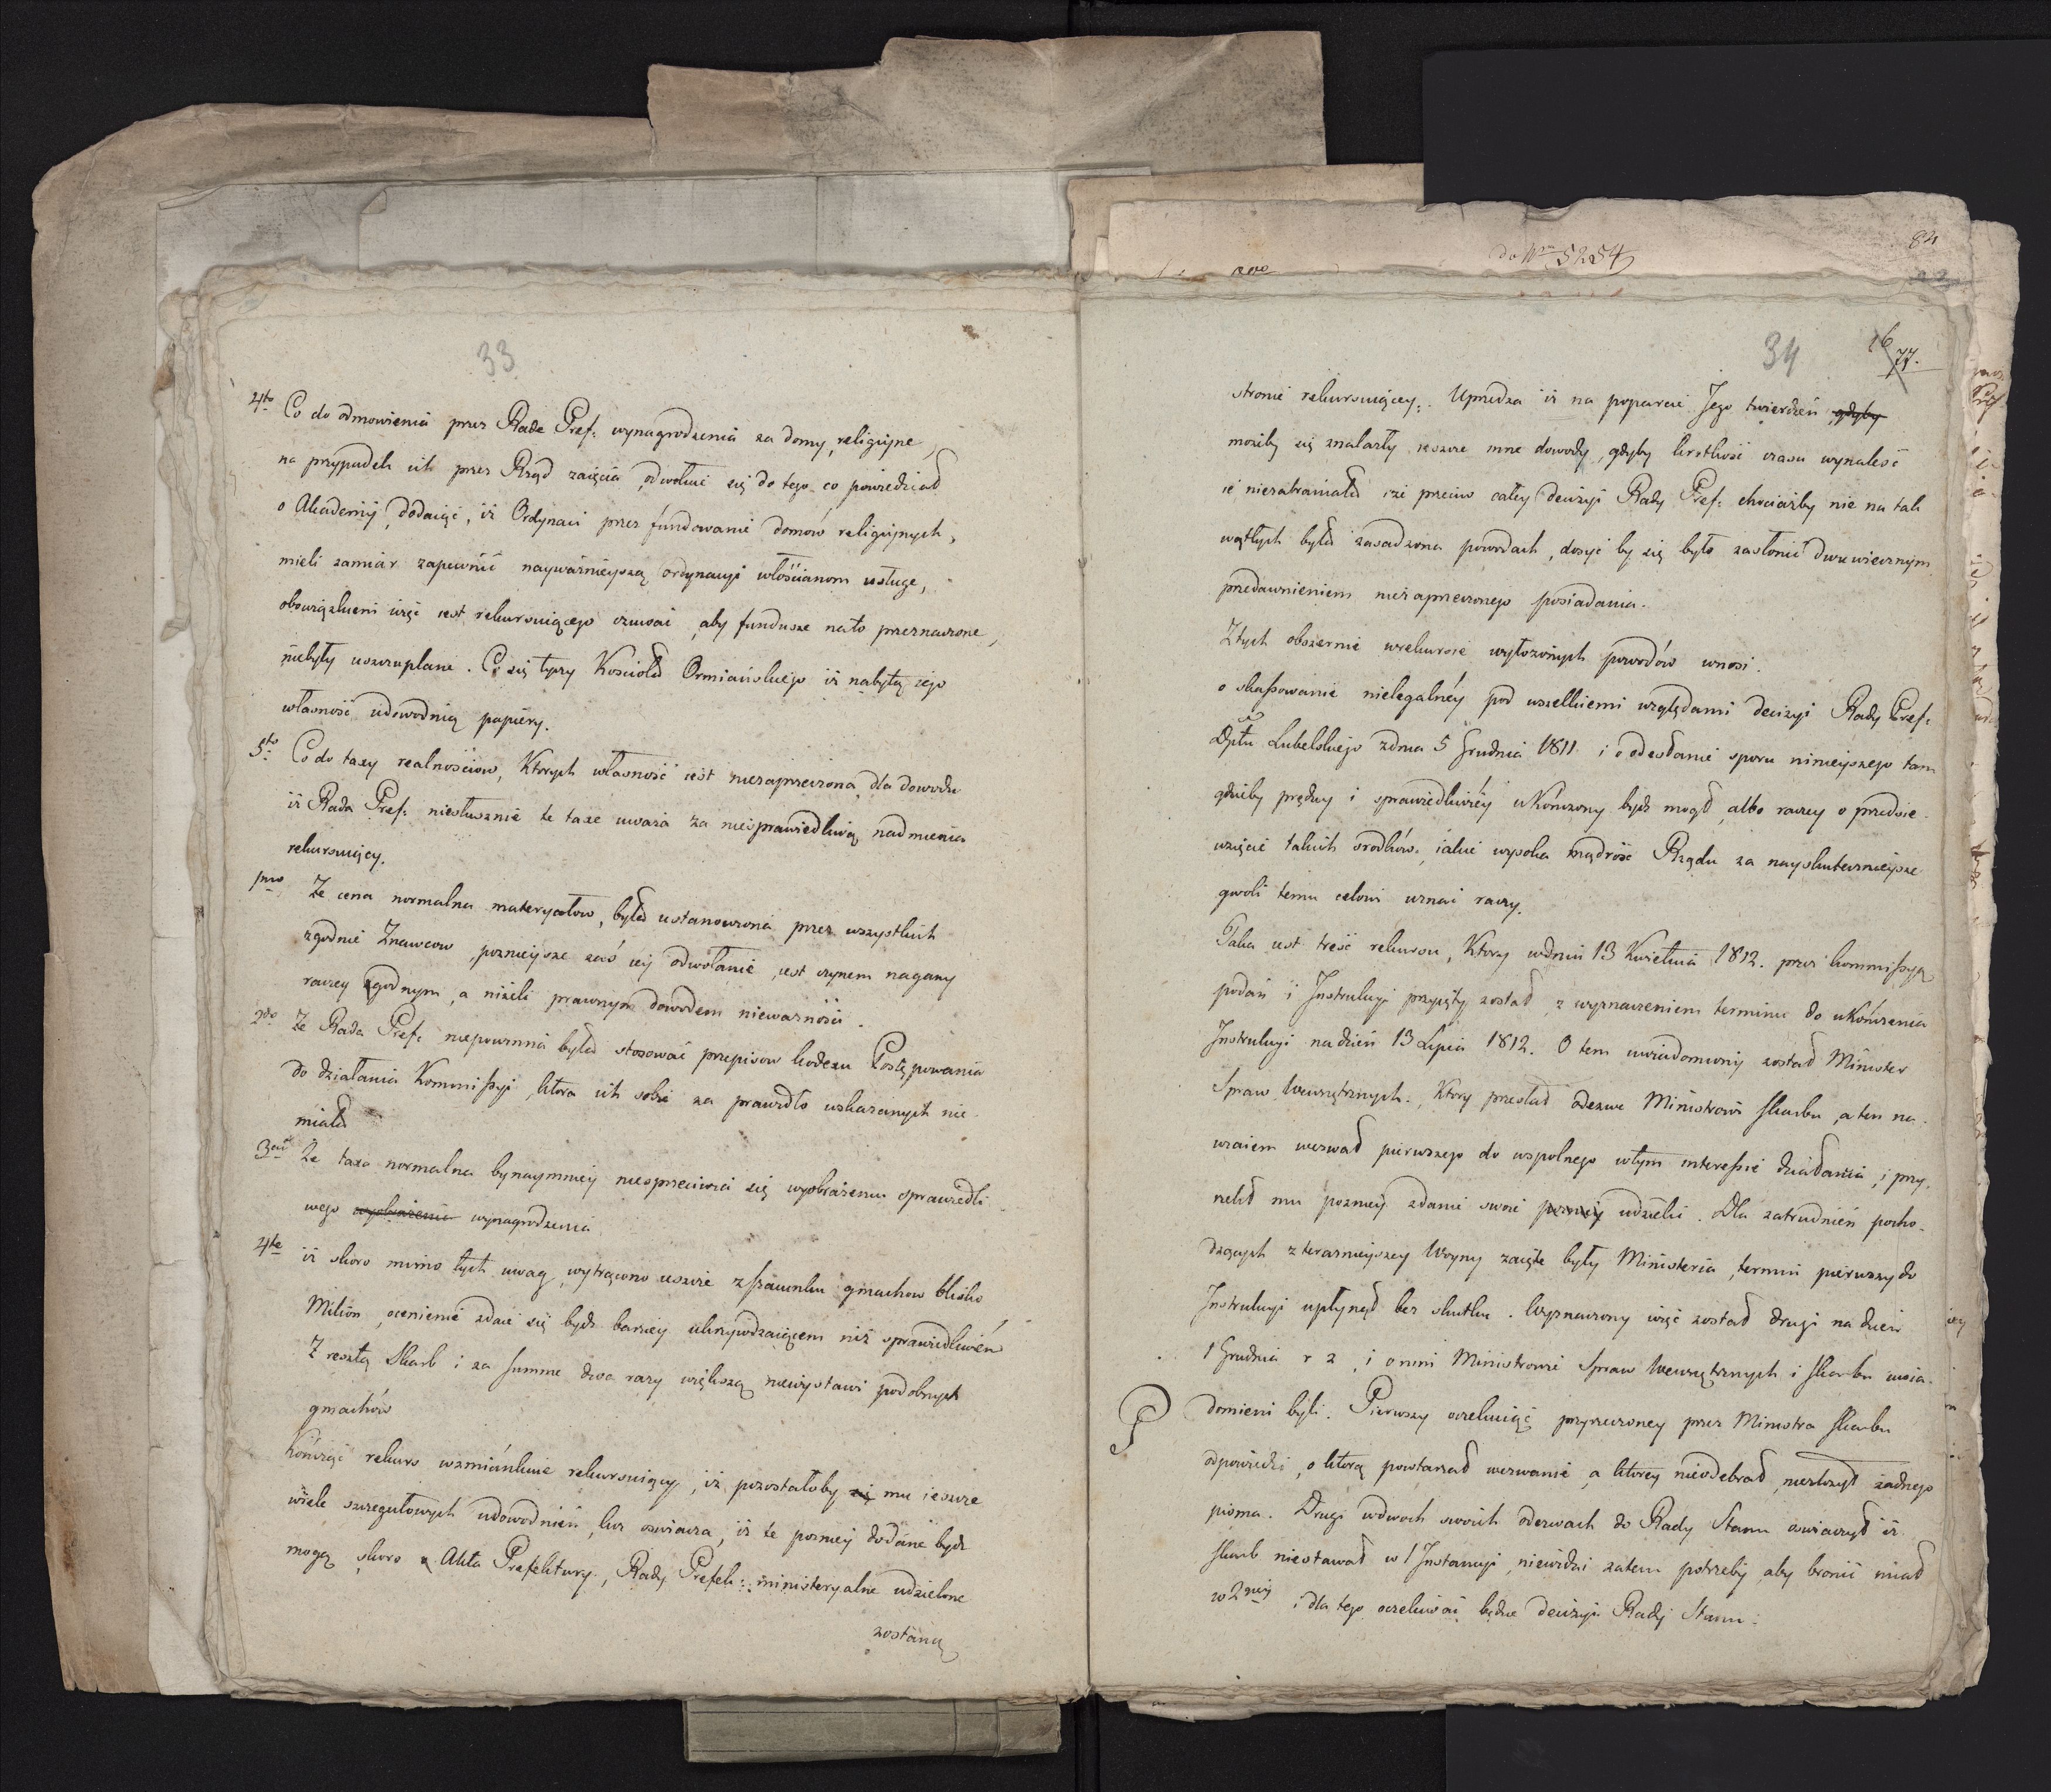 33
4to Co do odmowienia przez Radę Pref: wynagrodzenia za domy religijne,
na przypadek ich przez Rząd zaięcia, odwołuie się do tego co powiedział
o Akademij, dodaiąc, iż Ordynaci przez fundowanie domów religijnych,
mieli zamiar zapewnić nayważnieyszą ordynacyi włościanom usługę,
obowiązkiem więc iest rekursuiącego czuwać, aby fundusze na to przeznaczone,
niebyły uszczuplane. Co się tyczy Kościoła Ormiańskiego iż nabytą iego
własność udowodnią papiery.
5to Co do taxy realnościow, Ktorych własność iest niezaprzeczona, dla dowodu
iż Rada Pref: niesłusznie te taxe uważa za niesprawiedliwą nadmienia
rekursuiący.
1mo Ze cena normalna materyałow, była ustanowiona przez wszystkich
zgodnie Znawcow, poznieysze zaś iey odwołanie, iest czynem nagany
raczey godnym, a niżeli prawnym dowodem nieważności.
2do Ze Rada Pref: niepowinna była stosować przepisow kodexu Postępowania
do działania Kommissyi, ktora ich sobie za prawidło wskazanych nie
miała
3cio Ze taxa normalna bynaymniey niesprzeciwia się wyobrażeniu sprawiedli-
wego wyobrażenia wynagrodzenia
4to iż skoro mimo tych uwag, wytrącono ieszcze z szacunku gmachow blisko
Milion, ocenienie zdaie się bydź barziey ukrzywdzaiącem niż sprawiedliwém
Z resztą Skarb i za summe dwa razy większą niewystawi podobnych
gmachów
Kończąc rekurs wzmiánkuie rekursuiący, iż pozostałoby się mu ieszcze
wiele szczegułowych udowodnień, lecz oświacza, iż te pozniey dodane bydź
mogą, skoro Akta Prefektury, Rady Prefek: ministeryalne udzielone
zostaną
do Nru 5254
84
34
16
77.
stronie rekursuiącey. Uprzedza iż na poparcie Jego twierdzeń gdyby
możeby się znalazły ieszcze inne dowody, gdyby krotkość czasu wynaleść
ie niezabraniała, iże przeciw całey decizyi Rady Pref: chociażby nie na tak
wątłych była zasadzona powodach, dosyć by się było zasłonić dwuwiecznym
przedawnieniem niezaprzeczonego posiadania.
Z tych obszernie wrekursie wyłożonych powodów wnosi.
o skassowanie nielegalnéy pod wszelkiemi względami decizyi Rady Pref:
Dptu Lubelskiego zdnia 5 Grudnia 1811. i o odesłanie sporu ninieyszego tam
gdzieby prędzey i sprawiedliwiéy ukończony bydź mogł, albo raczey o przedsie-
wzięcie takich srodków, iakie wysoka mądrość Rządu za nayskutecznieysze
gwoli temu celowi uznać raczy.
Taka iest treść rekursu, Ktory wdniu 13 Kwietnia 1812. przez kommissyą
podań i Instrukcyi przyięty został, z wyznaczeniem terminu do ukończenia
Instrukcyi na dzień 13 Lipca 1812. O tem uwiadomiony został Minister
Spraw Wewnętrznych, Ktory przesłał odezwe Ministrowi skarbu, a ten na-
wzaiem wezwał pierwszego do wspolnego wtym interessie działania, i przy-
rzekł mu pozniey zdanie swoie pozniey udzielić. Dla zatrudnień pocho-
dzących z terazniejszey Woyny zaięte były Ministeria, termin pierwszy do
Instrukcyi upłynął bez skutku. Wyznaczony więc został drugi na dzień
1 Grudnia r z, i o nim Ministrowie Spraw Wewnętrznych i skarbu uwia-
domieni byli. Pierwszy oczekuiąc przyrzeczoney przez Ministra skarbu
odpowiedzi, o ktorą powtarzał wezwanie, a ktorey nieodebrał, niezłożył żadnego
pisma. Drugi wdwoch swoich odezwach do Rady Stanu oswiaczył iż
skarb niestawał w 1 Instancyi, niewidzi zatem potrzeby aby bronić miał
w 2giey i dla tego oczekiwać będzie decizyi Rady Stanu.